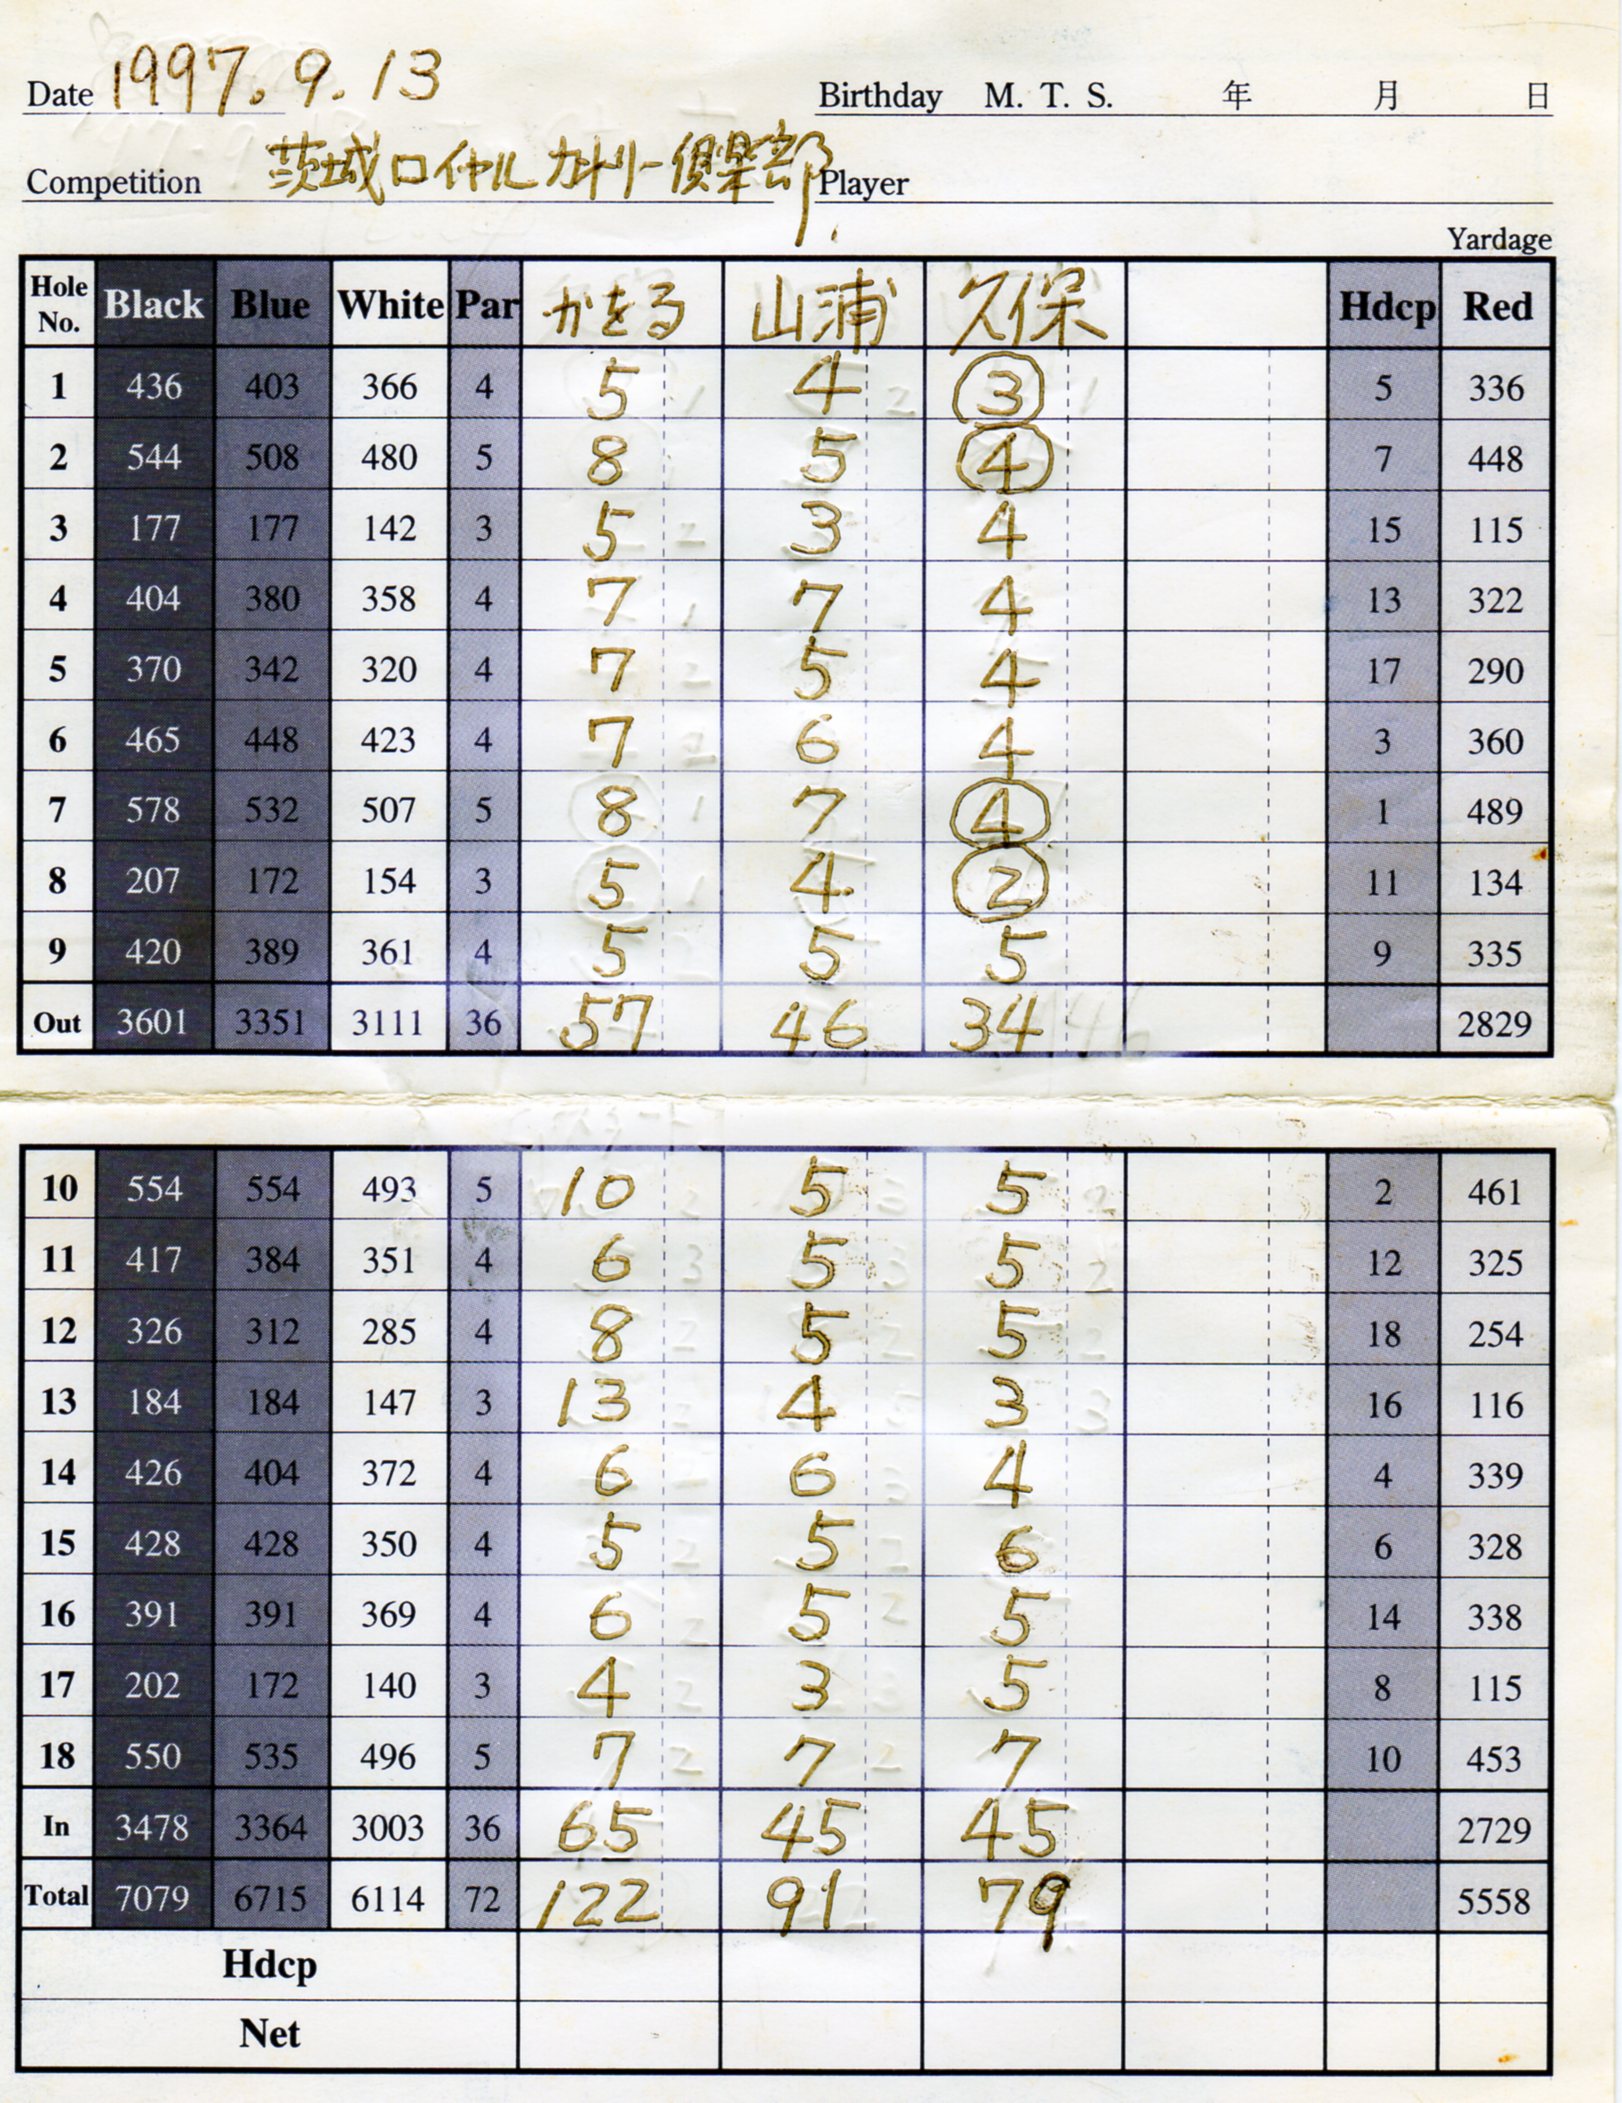 Date 1997.9.13 Birthday M. T. S. 年 月 日
Competition 茨城ロイヤルカントリー倶楽部 Player
Yardage
Hole No. Black Blue White Par かをる 山浦 久保 Hdcp Red
1 436 403 366 4 5 4 3 5 336
2 544 508 480 5 8 5 4 7 448
3 177 177 142 3 5 3 4 15 115
4 404 380 358 4 7 7 4 13 322
5 370 342 320 4 7 5 4 17 290
6 465 448 423 4 7 6 4 3 360
7 578 532 507 5 8 7 4 1 489
8 207 172 154 3 5 4 2 11 134
9 420 389 361 4 5 5 5 9 335
Out 3601 3351 3111 36 57 46 34 2829
10 554 554 493 5 10 5 5 2 461
11 417 384 351 4 6 5 5 12 325
12 326 312 285 4 8 5 5 18 254
13 184 184 147 3 13 4 3 16 116
14 426 404 372 4 6 6 4 4 339
15 428 428 350 4 5 5 6 6 328
16 391 391 369 4 6 5 5 14 338
17 202 172 140 3 4 3 5 8 115
18 550 535 496 5 7 7 7 10 453
In 3478 3364 3003 36 65 45 45 2729
Total 7079 6715 6114 72 122 91 79 5558
Hdcp
Net